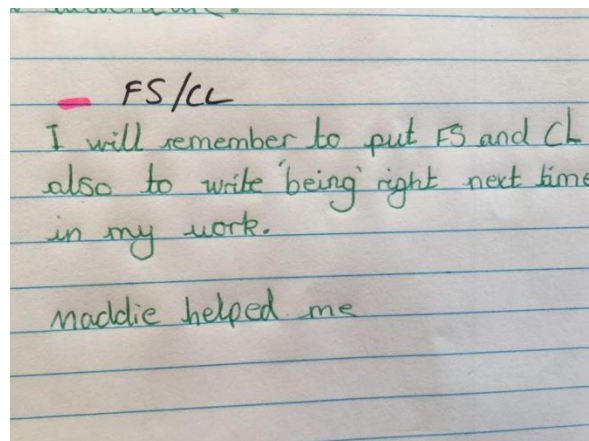 - FS/CL
I will remember to put FS and CL
also to write 'being' right next time
in my work.
Maddie helped me